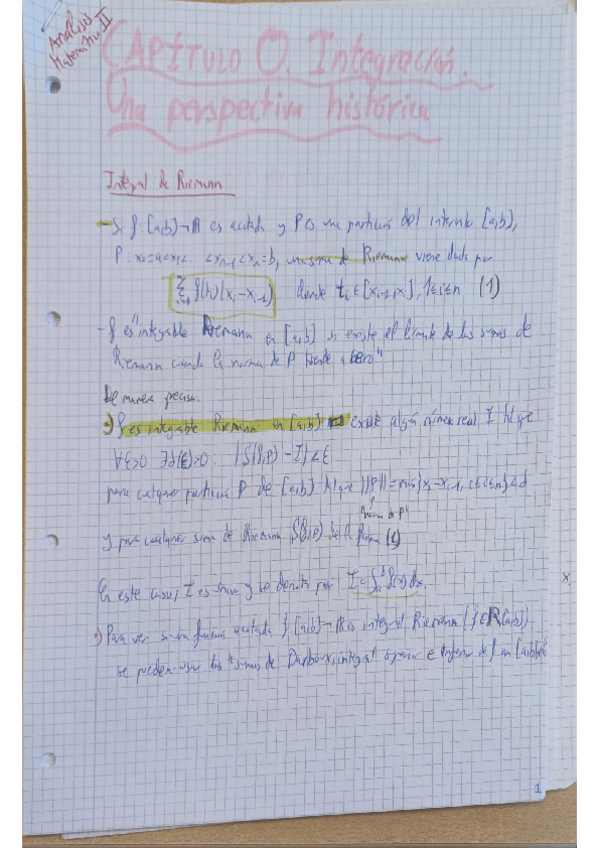 Análisis
Matemático II
CAPÍTULO 0. Integración.
Una perspectiva histórica
Integral de Riemann
- Si f: [a,b]→R es acotada y P es una partición del intervalo [a,b],
P: x₀=a<x₁<...<xₙ₋₁<xₙ=b, una suma de Riemann viene dada por
∑ᵢ₌₁ⁿ f(tᵢ)(xᵢ-xᵢ₋₁) donde tᵢ∈[xᵢ₋₁,xᵢ], 1≤i≤n (1)
- f es "integrable Riemann en [a,b] si existe el límite de las sumas de
Riemann cuando la norma de P tiende a cero"
De manera precisa:
f es integrable Riemann en [a,b] existe algún número real I tal que
∀ε>0 ∃δ(ε)>0: |S(f,P) - I|<ε
para cualquier partición P de [a,b] tal que ||P||=máx{xᵢ-xᵢ₋₁, 1≤i≤n}<δ
norma de P
y para cualquier suma de Riemann S(f,P) de la forma (1)
En este caso, I es único y se denota por I=∫ₐᵇ f(x)dx.
Para ver si una función acotada f: [a,b]→R es integral Riemann (f∈R[a,b])
se pueden usar las "sumas de Darboux, integral superior e inferior de f en [a,b]
1
x